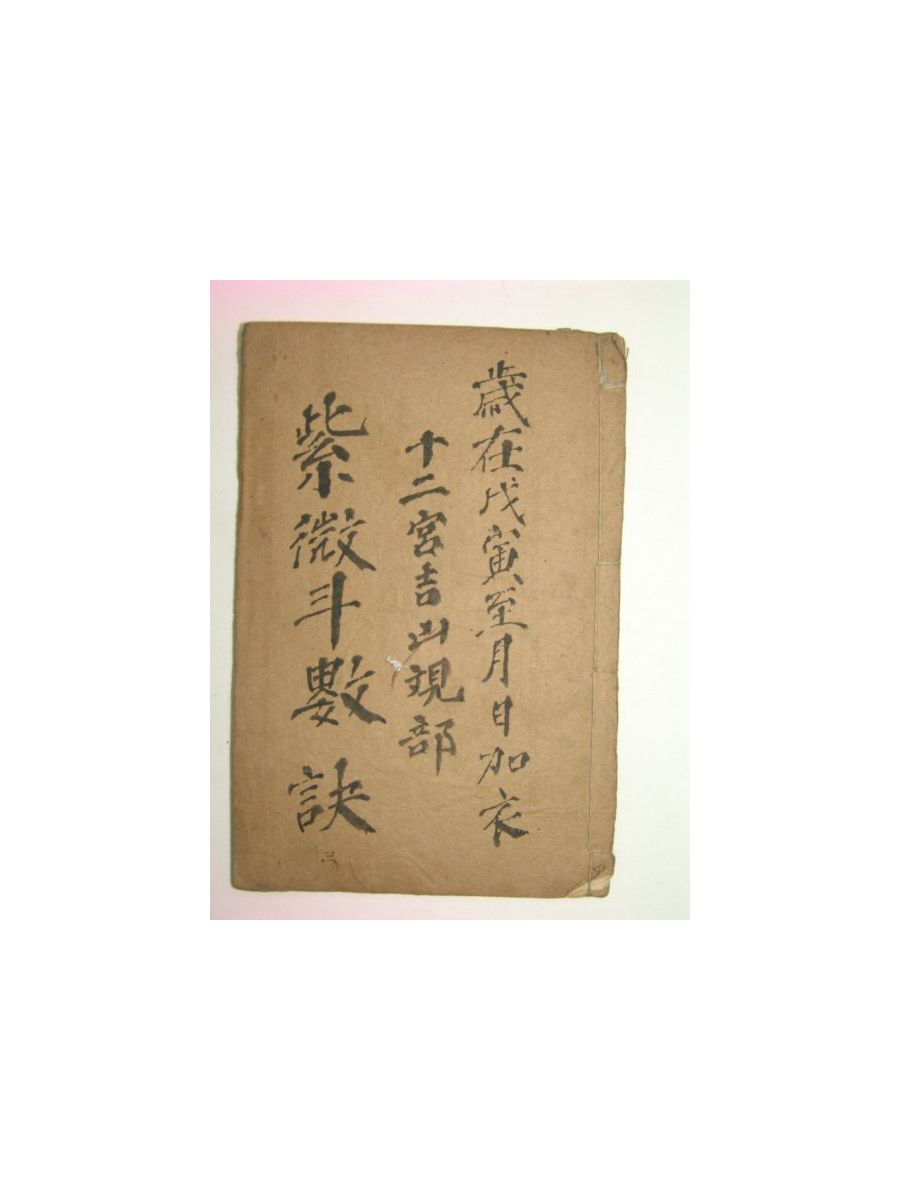 歲在戊寅至月日加衣
十二宮吉凶現部
紫微斗數訣
三